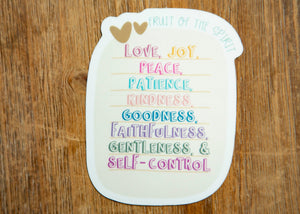 FRUIT OF THE SPIRIT
LOVE, JOY,
PEACE,
PATIENCE,
KINDNESS,
GOODNESS,
FAITHFULNESS,
GENTLENESS, &
SELF-CONTROL